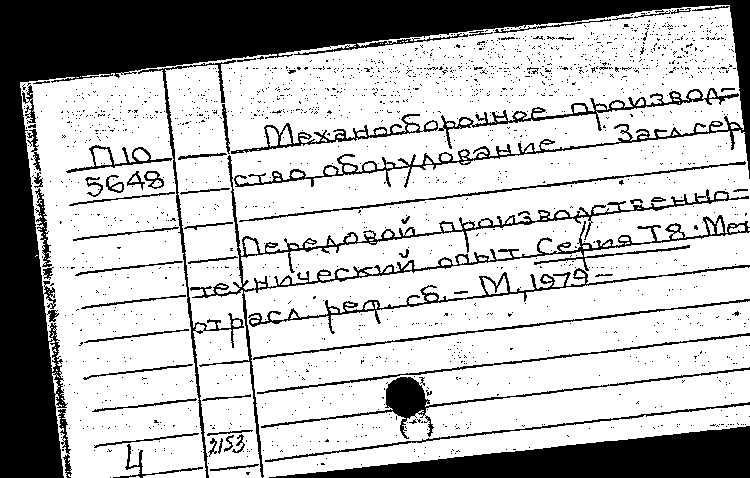 Механосборочное производ=
П10
ство, оборудование. Загл.сер
5648
Передовой производственно=
технический опыт. Серия Т8. Меж
отрасл. реф. сб. – М., 1979 –
4 2153